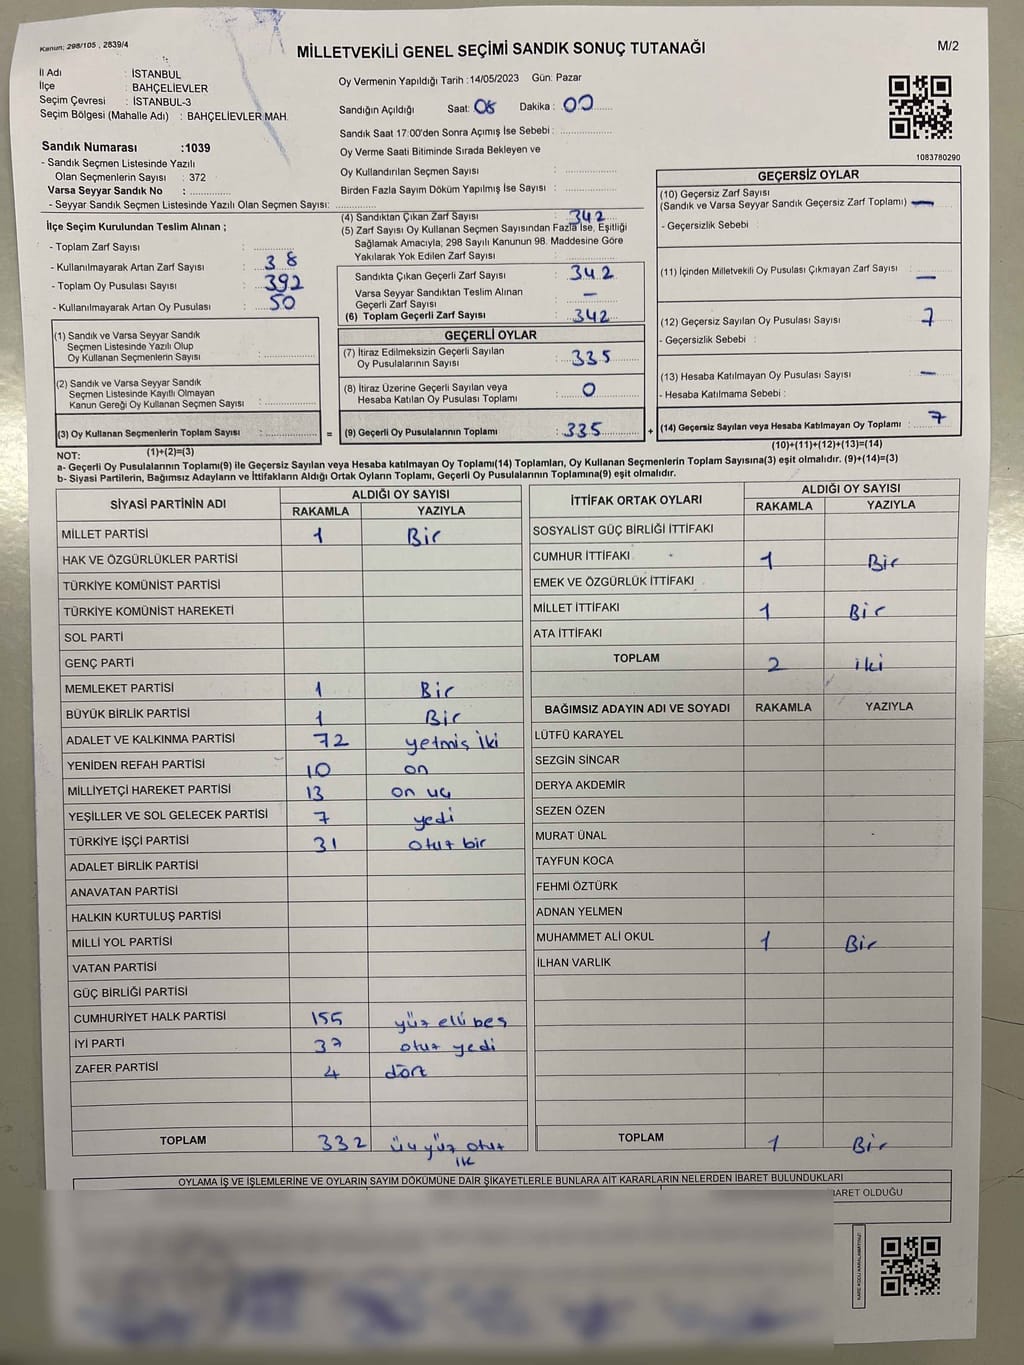 Kanun: 298/105 , 2839/4
MİLLETVEKİLİ GENEL SEÇİMİ SANDIK SONUÇ TUTANAĞI
M/2
İl Adı : İSTANBUL
İlçe : BAHÇELİEVLER
Seçim Çevresi : İSTANBUL-3
Seçim Bölgesi (Mahalle Adı) : BAHÇELİEVLER MAH.
Oy Vermenin Yapıldığı Tarih :14/05/2023 Gün: Pazar
Sandığın Açıldığı Saat: 08 Dakika : 00
Sandık Saat 17:00'den Sonra Açımış İse Sebebi :
Oy Verme Saati Bitiminde Sırada Bekleyen ve
Oy Kullandırılan Seçmen Sayısı :
Birden Fazla Sayım Döküm Yapılmış İse Sayısı :
1083780290
Sandık Numarası :1039
- Sandık Seçmen Listesinde Yazılı
Olan Seçmenlerin Sayısı : 372
Varsa Seyyar Sandık No :
- Seyyar Sandık Seçmen Listesinde Yazılı Olan Seçmen Sayısı:
İlçe Seçim Kurulundan Teslim Alınan ;
- Toplam Zarf Sayısı :
- Kullanılmayarak Artan Zarf Sayısı : 38
- Toplam Oy Pusulası Sayısı : 392
- Kullanılmayarak Artan Oy Pusulası : 50
(1) Sandık ve Varsa Seyyar Sandık
Seçmen Listesinde Yazılı Olup
Oy Kullanan Seçmenlerin Sayısı :
(2) Sandık ve Varsa Seyyar Sandık
Seçmen Listesinde Kayıtlı Olmayan
Kanun Gereği Oy Kullanan Seçmen Sayısı :
(3) Oy Kullanan Seçmenlerin Toplam Sayısı :
(1)+(2)=(3)
(4) Sandıktan Çıkan Zarf Sayısı : 342
(5) Zarf Sayısı Oy Kullanan Seçmen Sayısından Fazla İse, Eşitliği
Sağlamak Amacıyla; 298 Sayılı Kanunun 98. Maddesine Göre
Yakılarak Yok Edilen Zarf Sayısı :
Sandıkta Çıkan Geçerli Zarf Sayısı : 342
Varsa Seyyar Sandıktan Teslim Alınan
Geçerli Zarf Sayısı : —
(6) Toplam Geçerli Zarf Sayısı : 342
GEÇERLİ OYLAR
(7) İtiraz Edilmeksizin Geçerli Sayılan
Oy Pusulalarının Sayısı : 335
(8) İtiraz Üzerine Geçerli Sayılan veya
Hesaba Katılan Oy Pusulası Toplamı : 0
= (9) Geçerli Oy Pusulalarının Toplamı : 335 +
GEÇERSİZ OYLAR
(10) Geçersiz Zarf Sayısı
(Sandık ve Varsa Seyyar Sandık Geçersiz Zarf Toplamı) : —
- Geçersizlik Sebebi :
(11) İçinden Milletvekili Oy Pusulası Çıkmayan Zarf Sayısı : —
(12) Geçersiz Sayılan Oy Pusulası Sayısı : 7
- Geçersizlik Sebebi :
(13) Hesaba Katılmayan Oy Pusulası Sayısı : —
- Hesaba Katılmama Sebebi :
(14) Geçersiz Sayılan veya Hesaba Katılmayan Oy Toplamı : 7
(10)+(11)+(12)+(13)=(14)
NOT:
a- Geçerli Oy Pusulalarının Toplamı(9) ile Geçersiz Sayılan veya Hesaba katılmayan Oy Toplamı(14) Toplamları, Oy Kullanan Seçmenlerin Toplam Sayısına(3) eşit olmalıdır. (9)+(14)=(3)
b- Siyasi Partilerin, Bağımsız Adayların ve İttifakların Aldığı Ortak Oyların Toplamı, Geçerli Oy Pusulalarının Toplamına(9) eşit olmalıdır.
SİYASİ PARTİNİN ADI ALDIĞI OY SAYISI
RAKAMLA YAZIYLA
MİLLET PARTİSİ 1 Bir
HAK VE ÖZGÜRLÜKLER PARTİSİ
TÜRKİYE KOMÜNİST PARTİSİ
TÜRKİYE KOMÜNİST HAREKETİ
SOL PARTİ
GENÇ PARTİ
MEMLEKET PARTİSİ 1 Bir
BÜYÜK BİRLİK PARTİSİ 1 Bir
ADALET VE KALKINMA PARTİSİ 72 yetmiş iki
YENİDEN REFAH PARTİSİ 10 on
MİLLİYETÇİ HAREKET PARTİSİ 13 on uç
YEŞİLLER VE SOL GELECEK PARTİSİ 7 yedi
TÜRKİYE İŞÇİ PARTİSİ 31 otuz bir
ADALET BİRLİK PARTİSİ
ANAVATAN PARTİSİ
HALKIN KURTULUŞ PARTİSİ
MİLLİ YOL PARTİSİ
VATAN PARTİSİ
GÜÇ BİRLİĞİ PARTİSİ
CUMHURİYET HALK PARTİSİ 155 yüz elli beş
İYİ PARTİ 37 otuz yedi
ZAFER PARTİSİ 4 dört
TOPLAM 332 üçyüz otuz
İTTİFAK ORTAK OYLARI ALDIĞI OY SAYISI
RAKAMLA YAZIYLA
SOSYALİST GÜÇ BİRLİĞİ İTTİFAKI
CUMHUR İTTİFAKI 1 Bir
EMEK VE ÖZGÜRLÜK İTTİFAKI
MİLLET İTTİFAKI 1 Bir
ATA İTTİFAKI
TOPLAM 2 iki
BAĞIMSIZ ADAYIN ADI VE SOYADI RAKAMLA YAZIYLA
LÜTFÜ KARAYEL
SEZGİN SİNCAR
DERYA AKDEMİR
SEZEN ÖZEN
MURAT ÜNAL
TAYFUN KOCA
FEHMİ ÖZTÜRK
ADNAN YELMEN
MUHAMMET ALİ OKUL 1 Bir
İLHAN VARLIK
TOPLAM 1 Bir
OYLAMA İŞ VE İŞLEMLERİNE VE OYLARIN SAYIM DÖKÜMÜNE DAİR ŞİKAYETLERLE BUNLARA AİT KARARLARIN NELERDEN İBARET BULUNDUKLARI
OLDUĞU